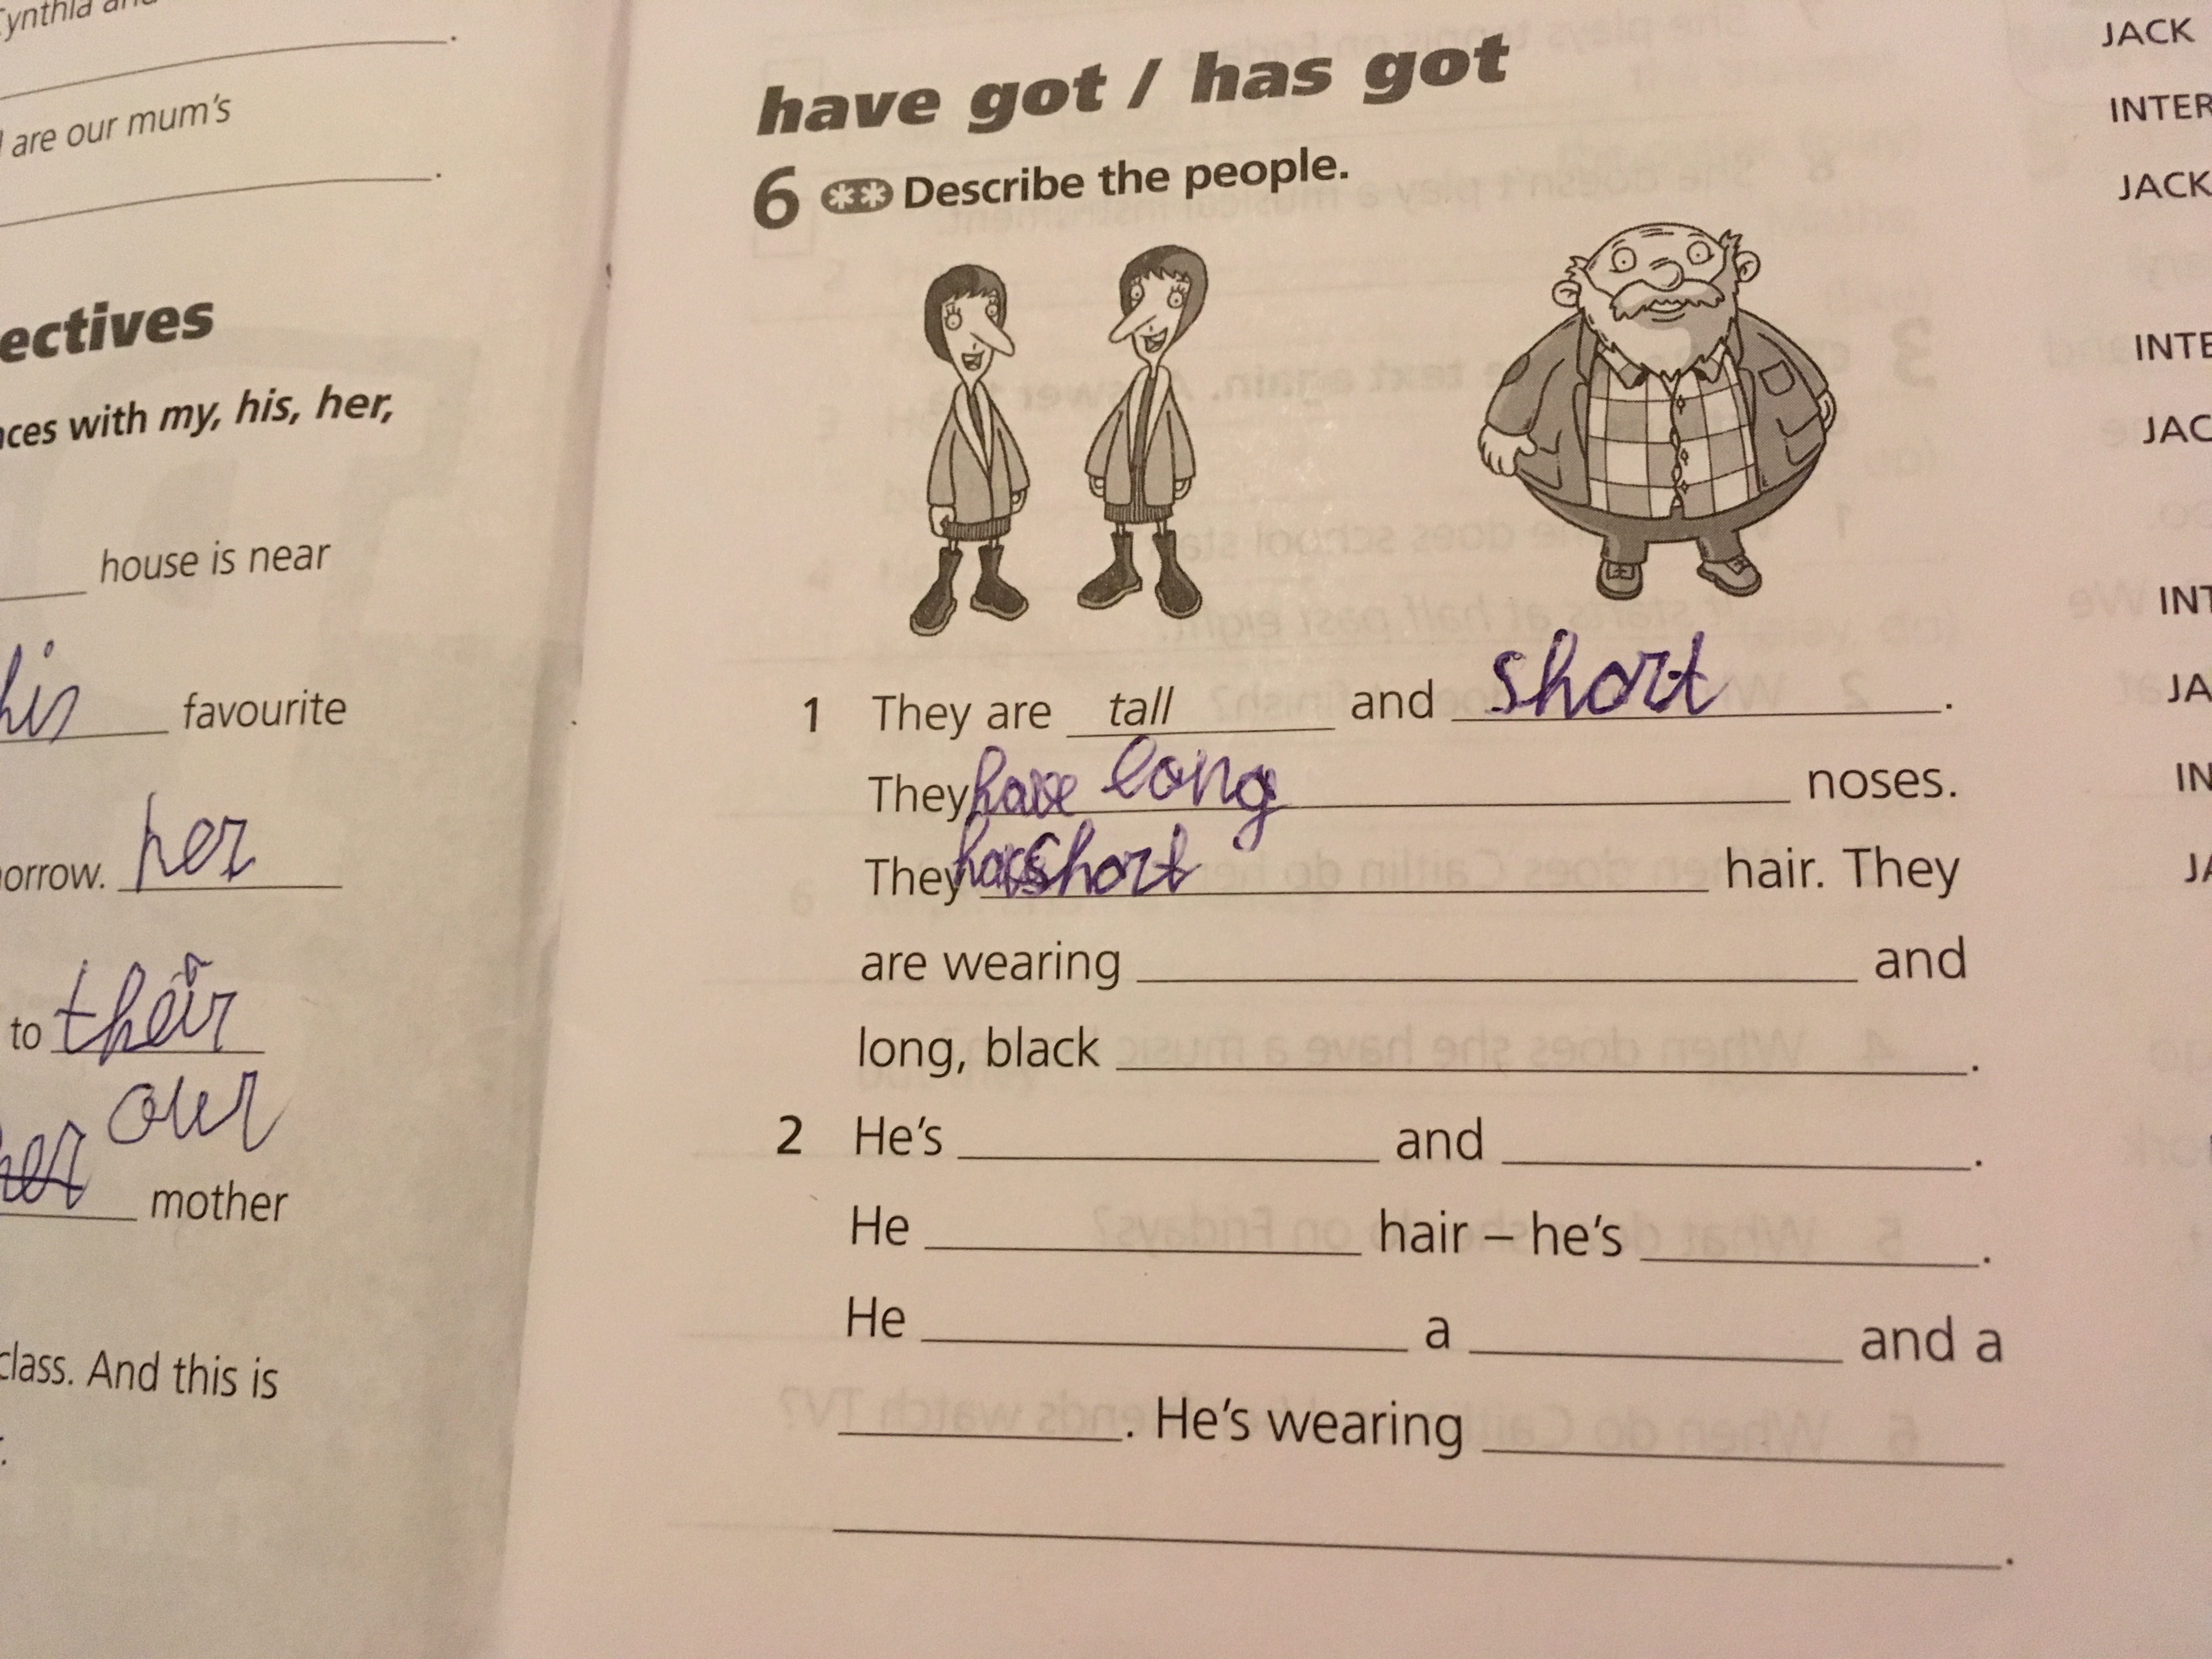 Cynthia and
.
are our mum's
.
ectives
nces with my, his, her,
house is near
his favourite
orrow. her
to their
our
her mother
class. And this is
.
have got / has got
6 ** Describe the people.
1 They are tall and short.
They have long noses.
They short hair. They
are wearing and
long, black .
2 He's and .
He hair – he's .
He a and a
. He's wearing
.
JACK
INTER
JACK
INTE
JAC
INT
JA
IN
JA